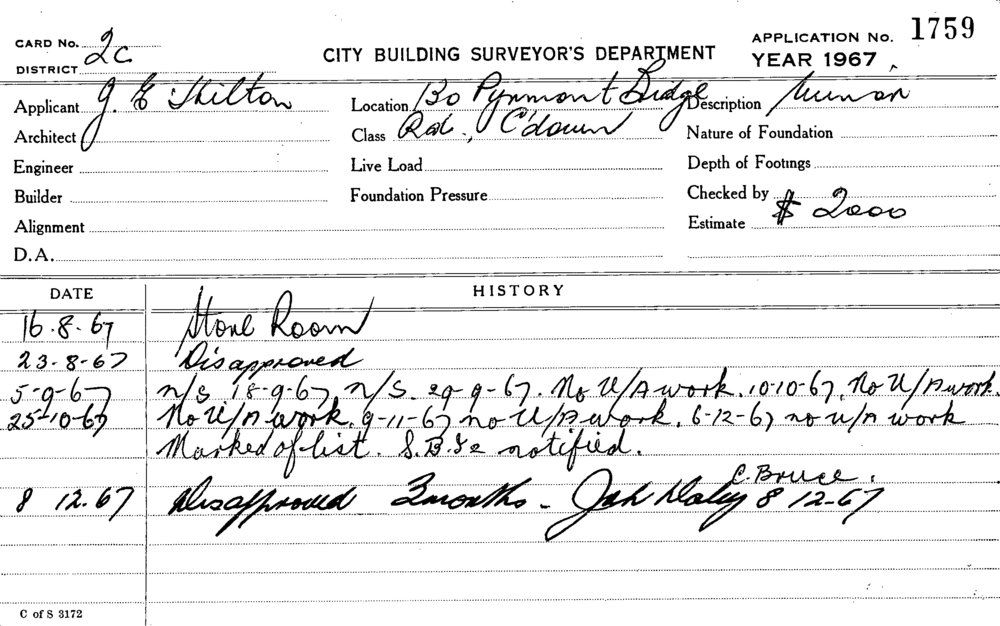 CARD No. 2c
DISTRICT
CITY BUILDING SURVEYOR'S DEPARTMENT
APPLICATION No. 1759
YEAR 1967
Applicant J. E Skilton
Location 130 Pyrmont Bridge
Description
Architect
Class Rd., C'down
Nature of Foundation
Engineer
Live Load
Depth of Footings
Builder
Foundation Pressure
Checked by
Alignment
Estimate $ 2000
D.A.
DATE HISTORY
16.8.67 Store Room
23-8-67 Disapproved
5-9-67 n/s. 18-9-67, n/s. 29-9-67. No U/A work. 10-10-67, No U/A work.
25-10-67 No U/A work. 9-11-67 no U/A work. 6-12-67 no u/A work
Marked of list. S.B.I. notified.
C. Bruce.
8 12.67 Disapproved 3 months - 8 12-67
C of S 3172